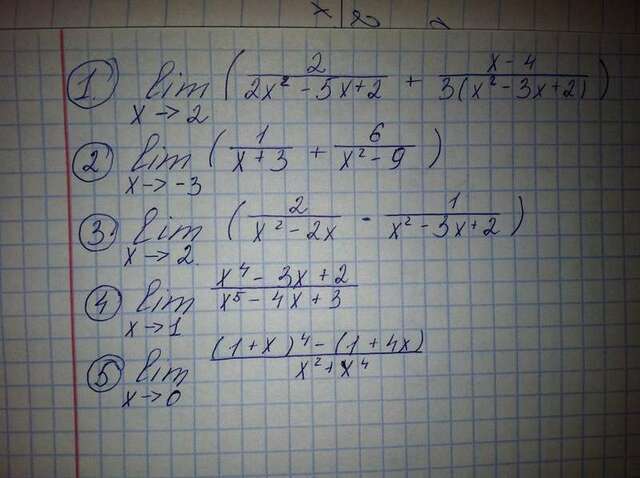 1. lim x→2 ( 2/(2x² - 5x + 2) + (x - 4)/(3(x² - 3x + 2)) )
2 lim x→-3 ( 1/(x + 3) + 6/(x² - 9) )
3. lim x→2 ( 2/(x² - 2x) - 1/(x² - 3x + 2) )
4 lim x→1 (x⁴ - 3x + 2)/(x⁵ - 4x + 3)
5 lim x→0 ((1 + x)⁴ - (1 + 4x))/(x² + x⁴)